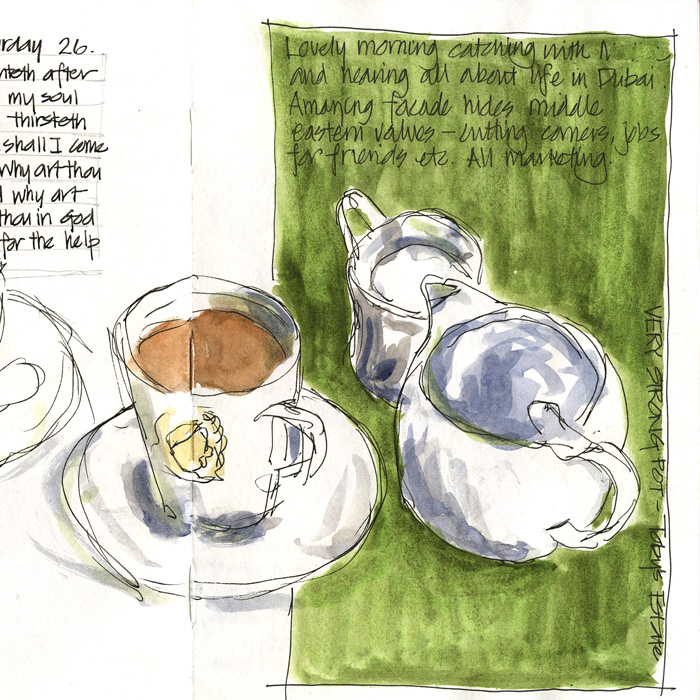 rday 26.
nteth after
my soul
thirsteth
shall I come
why art thou
d why art
thou in god
for the help
Lovely morning catching with N
and hearing all about life in Dubai.
Amazing facade hides middle
eastern values - cutting corners, jobs
for friends etc. All marketing.
VERY STRONG POT - Estate